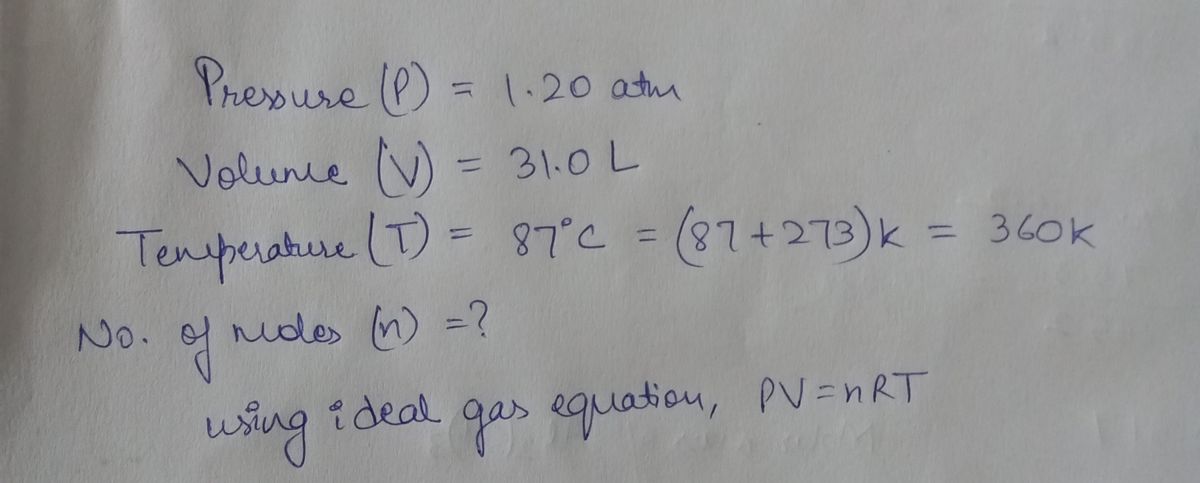 Pressure (P) = 1.20 atm
Volume (V) = 31.0 L
Temperature (T) = 87°C = (87+273)k = 360k
No. of moles (n) =?
using ideal gas equation, PV=nRT